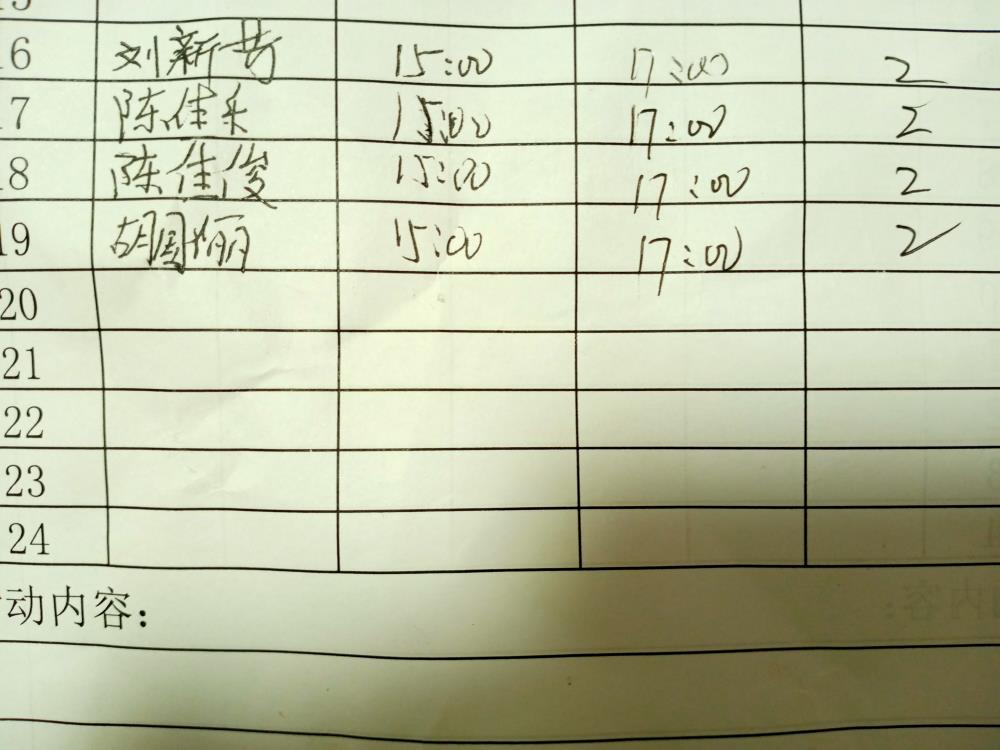 16 刘新芳 15:00 17:00 2
17 陈佳乐 15:00 17:00 2
18 陈佳俊 15:00 17:00 2
19 胡周丽 15:00 17:00 2
20
21
22
23
24
动内容：